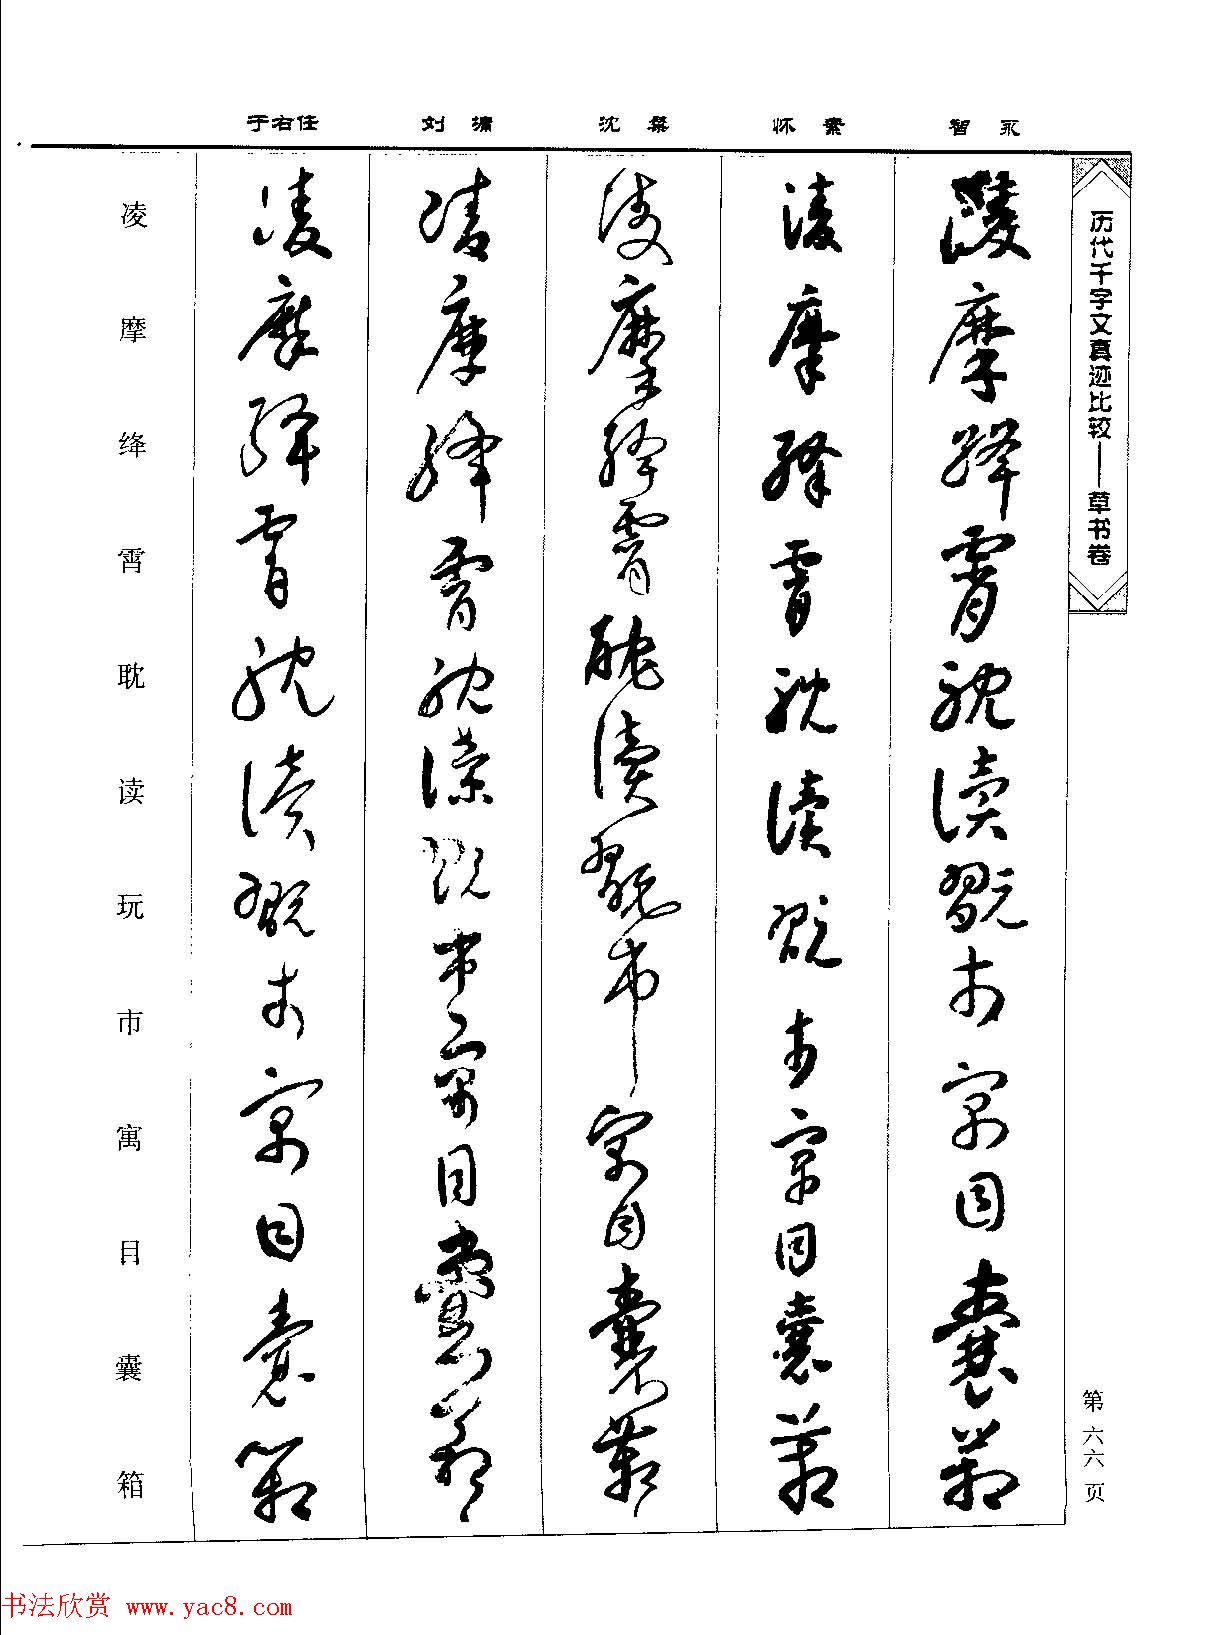 历代千字文真迹比较——草书卷
第六六页
智永
凌摩絳霄耽讀翫市寓目囊箱
怀素
凌摩絳霄耽讀翫市寓目囊箱
沈粲
凌摩絳霄耽讀翫市寓目囊箱
刘墉
凌摩絳霄耽讀翫市寓目囊箱
于右任
凌摩絳霄耽讀翫市寓目囊箱
凌摩绛霄耽读玩市寓目囊箱
书法欣赏 www.yac8.com